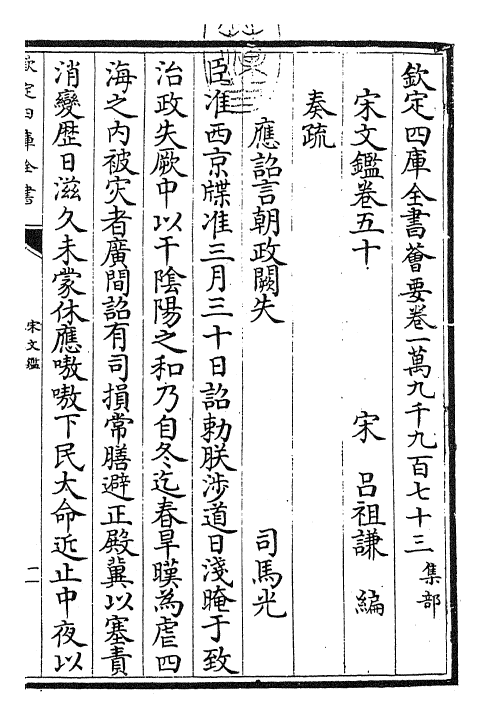 欽定四庫全書薈要卷一萬九千九百七十三 集部
宋文鑑卷五十
宋 呂祖謙 編
奏疏
應詔言朝政闕失
司馬光
臣准西京牒准三月三十日詔勅朕涉道日淺晻于致
治政失厥中以干陰陽之和乃自冬迄春旱暵為虐四
海之内被灾者廣間詔有司損常膳避正殿冀以塞責
消變歴日滋久未蒙休應嗷嗷下民大命近止中夜以
欽定四庫全書
宋文鑑
一